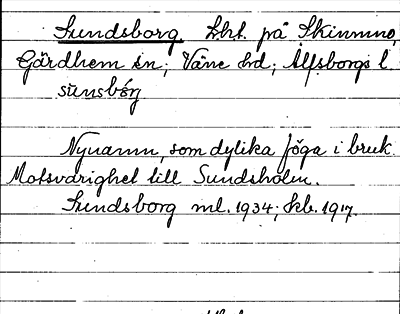 Sundsborg. Lht. på Skimmno,
Gärdhem sn; Väne hd; Älfsborgs l
sùnsbórg
Nynamn, som dylika föga i bruk.
Motsvarighet till Sundsholm.
Sundsborg ml. 1934; kb. 1917.